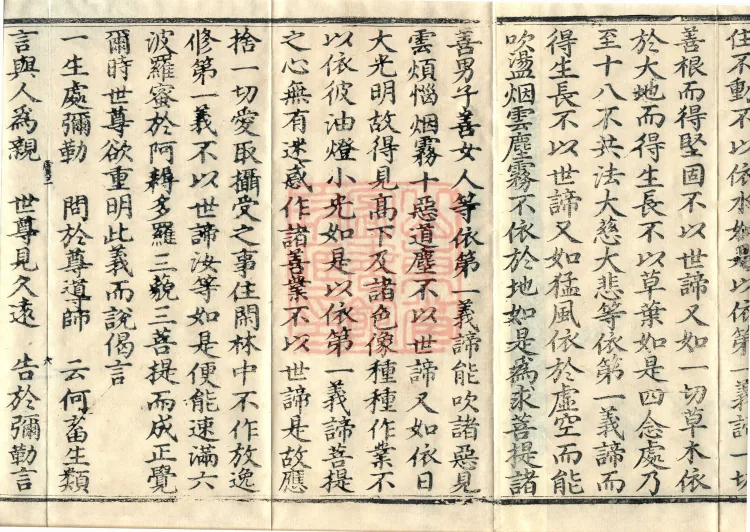 住不動不以依水如是以依第一義諦一切
善根而得堅固不以世諦又如一切草木依
於大地而得生長不以草葉如是四念處乃
至十八不共法大慈大悲等依第一義諦而
得生長不以世諦又如猛風依於虛空而能
吹盪烟雲塵霧不依於地如是為求菩提諸
善男子善女人等依第一義諦能吹諸惡見
雲煩惱烟霧十惡道塵不以世諦又如依日
大光明故得見高下及諸色像種種作業不
以依彼油燈小光如是以依第一義諦菩提
之心無有迷惑作諸善業不以世諦是故應
捨一切愛取攝受之事住閑林中不作放逸
修第一義不以世諦汝等如是便能速滿六
波羅蜜於阿耨多羅三藐三菩提而成正覺
爾時世尊欲重明此義而說偈言
一生處彌勒 問於尊導師 云何畜生類
言與人為親 世尊見久遠 告於彌勒言
六